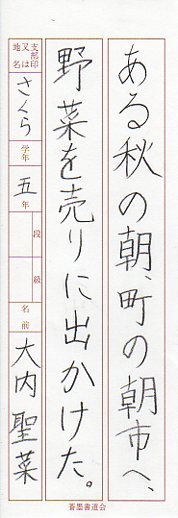 ある秋の朝、町の朝市へ、
野菜を売りに出かけた。
支部印又は地名 さくら 学年 五年 段 級 名前 大内聖菜
蒼墨書道会